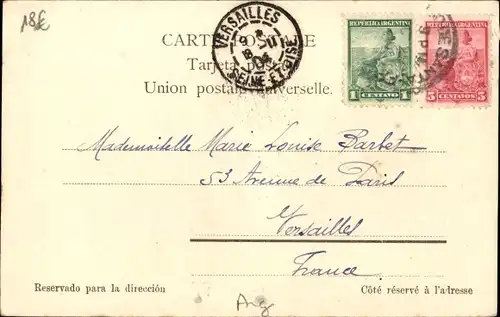 18€
VERSAILLES
SEINE-ET-OISE
CARTE POSTALE
Tarjeta postal
Union postale universelle.
REPUBLICA ARGENTINA
1 CENTAVO 1
REPUBLICA ARGENTINA
5 CENTAVOS 5
Mademoiselle Marie Louise Barbet
53 Avenue de Paris
Versailles
France
Reservado para la dirección
Côté réservé à l'adresse
Arg